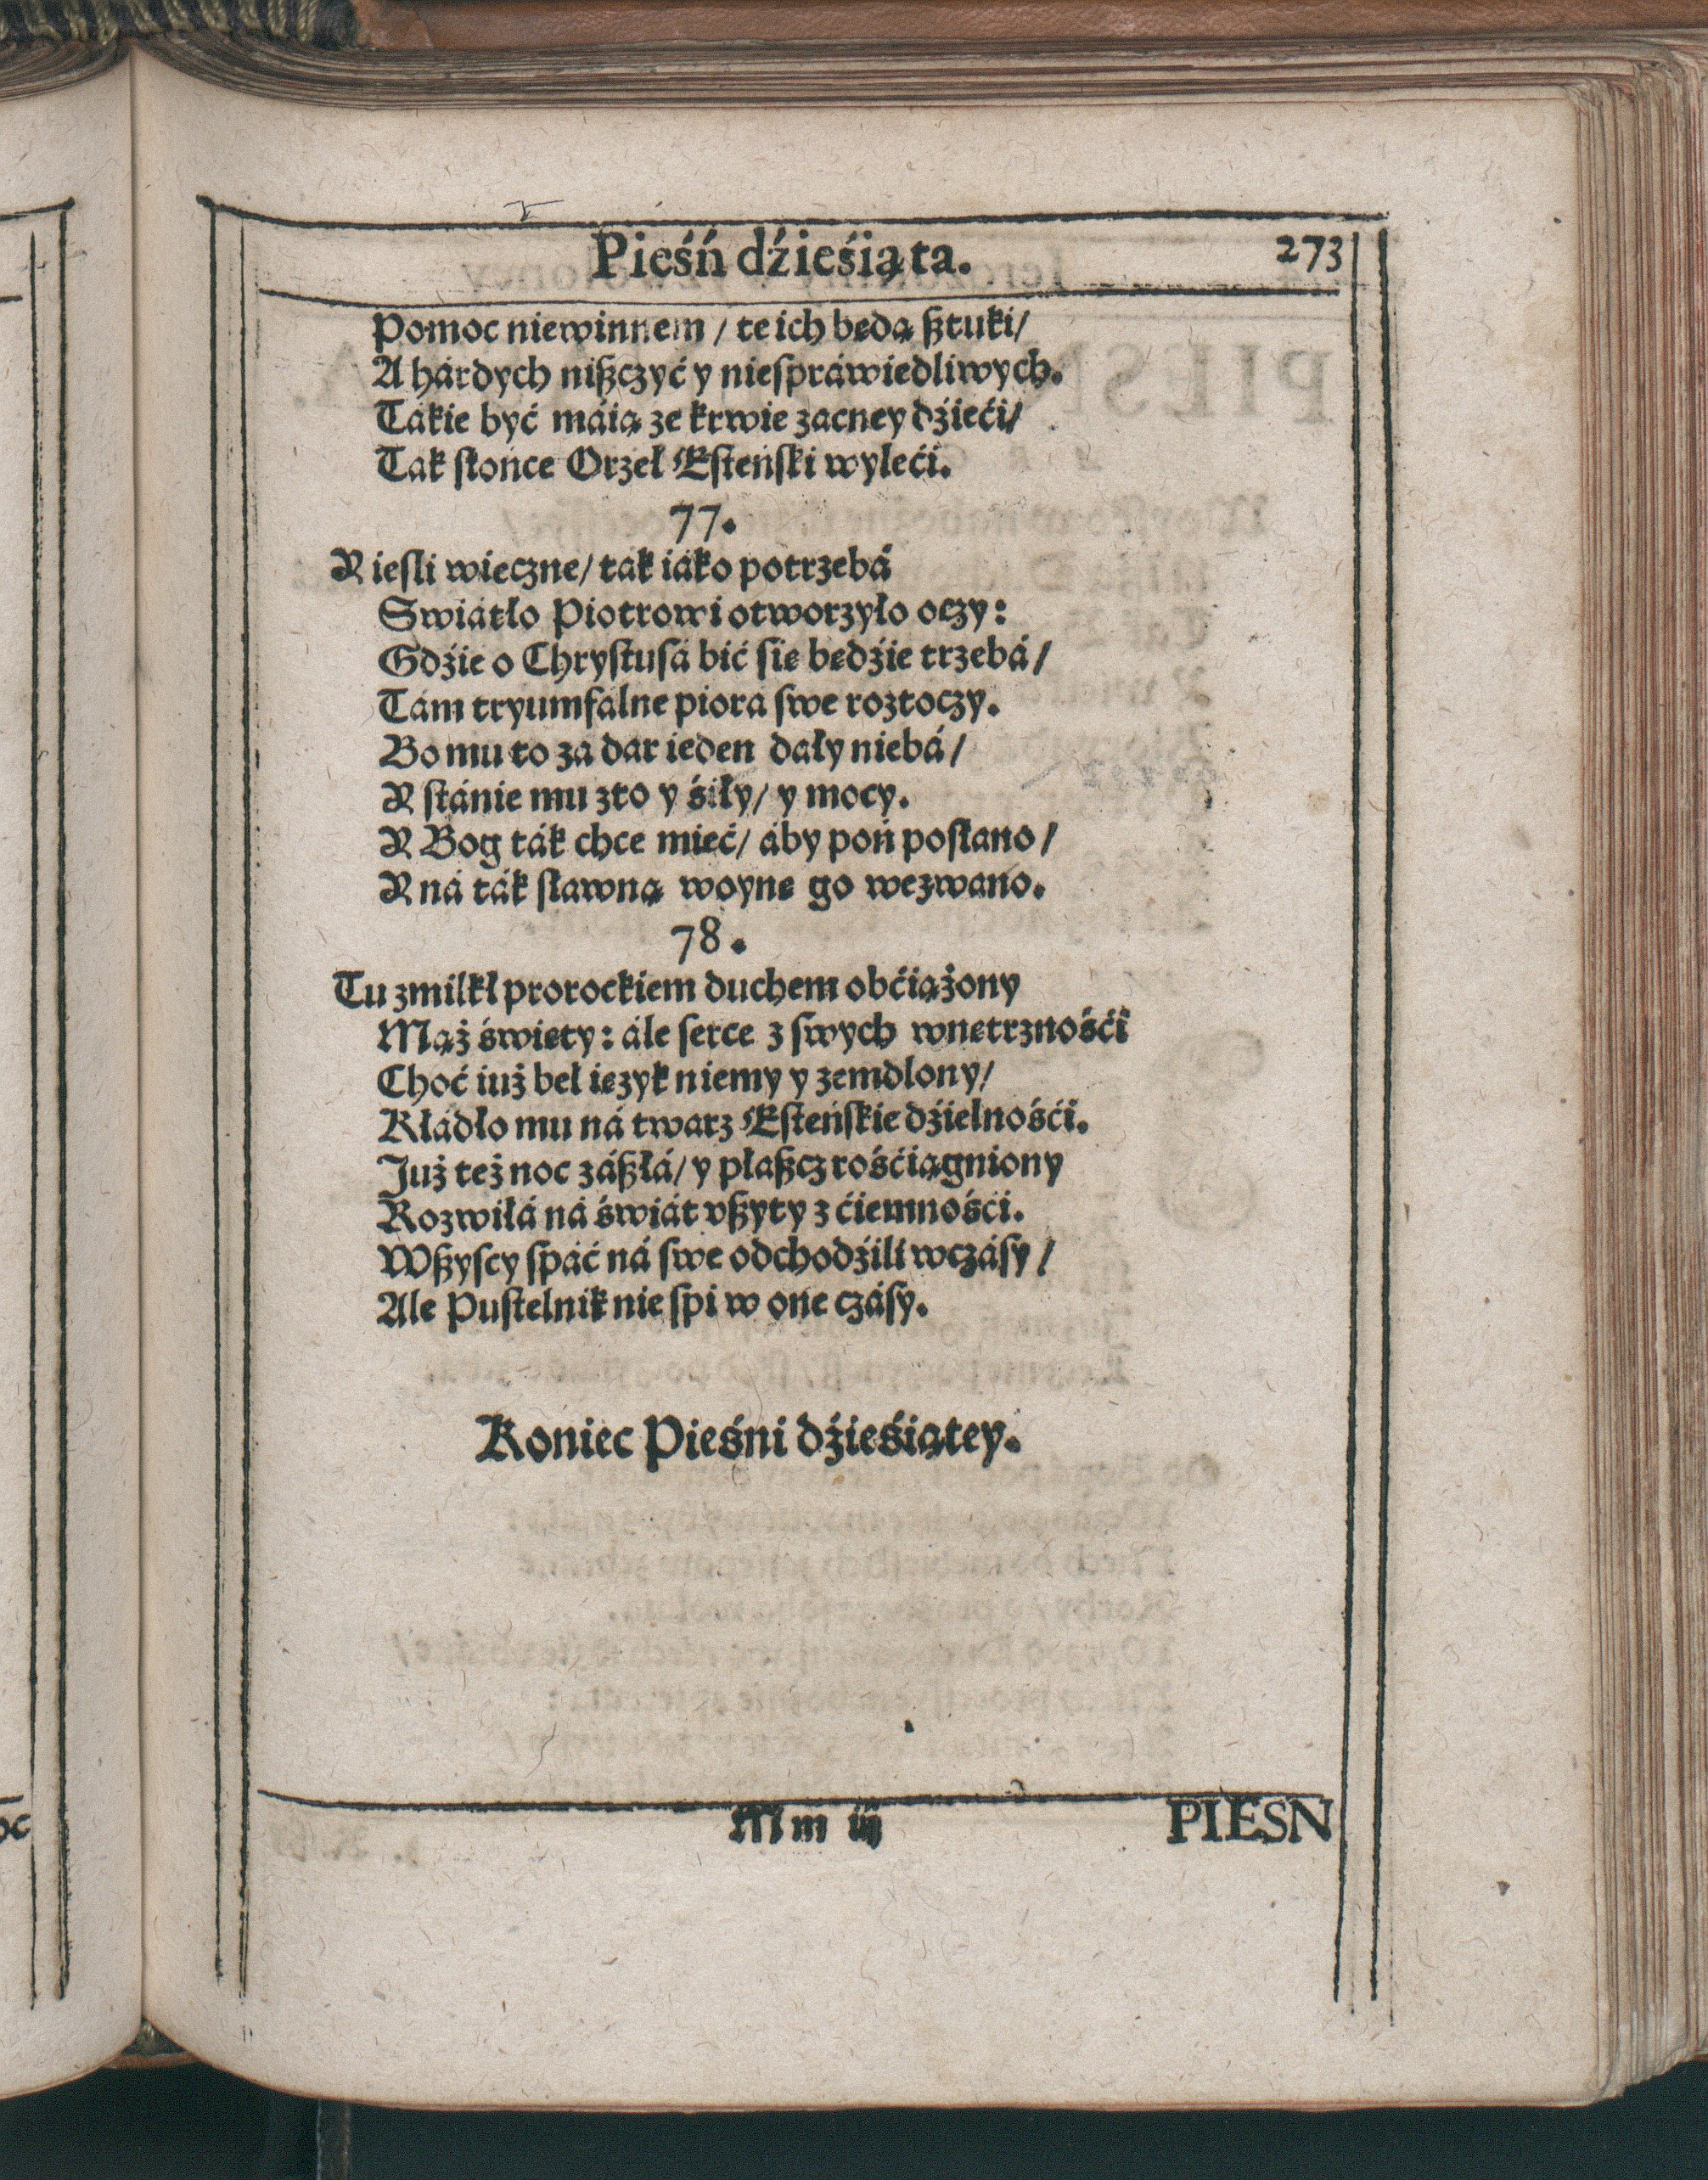 Pieśń dźieśiąta.
273
Pomoc niewinnem / te ich będą ßtuki/
A hárdych nißczyć y niespráwiedliwych.
Tákie być máią ze krwie zacney dźieći/
Ták słońce Orzeł Esteński wyleći.
77.
Y iesli wieczne/ ták iáko potrzebá
Swiátło Piotrowi otworzyło oczy:
Gdźie o Chrystusá bić się będźie trzebá/
Tám tryumfálne piorá swe roztoczy.
Bo mu to zá dar ieden dáły niebá/
Y stánie mu zto y śiły/ y mocy.
Y Bog ták chce mieć/ áby poń posłano/
Y ná ták sławną woynę go wezwano.
78.
Tu zmilkł prorockiem duchem obćiążony
Mąż święty: ále serce z swych wnętrznośći
Choć iuż beł ięzyk niemy y zemdlony/
Kłádło mu ná twarz Esteńskie dźielnośći.
Już też noc záßłá/ y płaßcz rośćiągniony
Rozwiłá ná świát vßyty z ćiemnośći.
Wßyscy spáć ná swe odchodźili wczásy/
Ale Pustelnik nie spi w one czásy.
Koniec Pieśni dźieśiątey.
Mm iij
PIESN